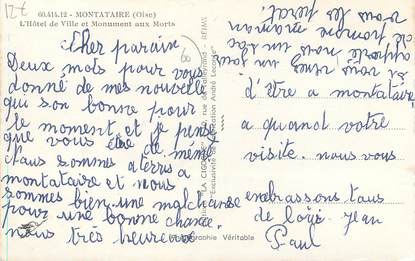 12€
60.414.12 - MONTATAIRE (Oise)
L'Hôtel de Ville et Monument aux Morts
Cher parain
Deux mots pour vous
donné de mes nouvelle
qui son bonne pour
le moment et je pense
que vous être de même
Naus sommes a terris a
montataire et nous
sommes bien une malchanse
pour une bonne chance.
nous très heureuse
"LA CIGOGNE"
rue de Talleyrand - REIMS
"Exclusivité
André Leconte"
Photographie Véritable
d'être a montataire
a quand votre
visite. nous vous
enebrassons taus
de loui. Jean
Paul
si vous venez un jour
apporte nous un sac
de maman
vous les